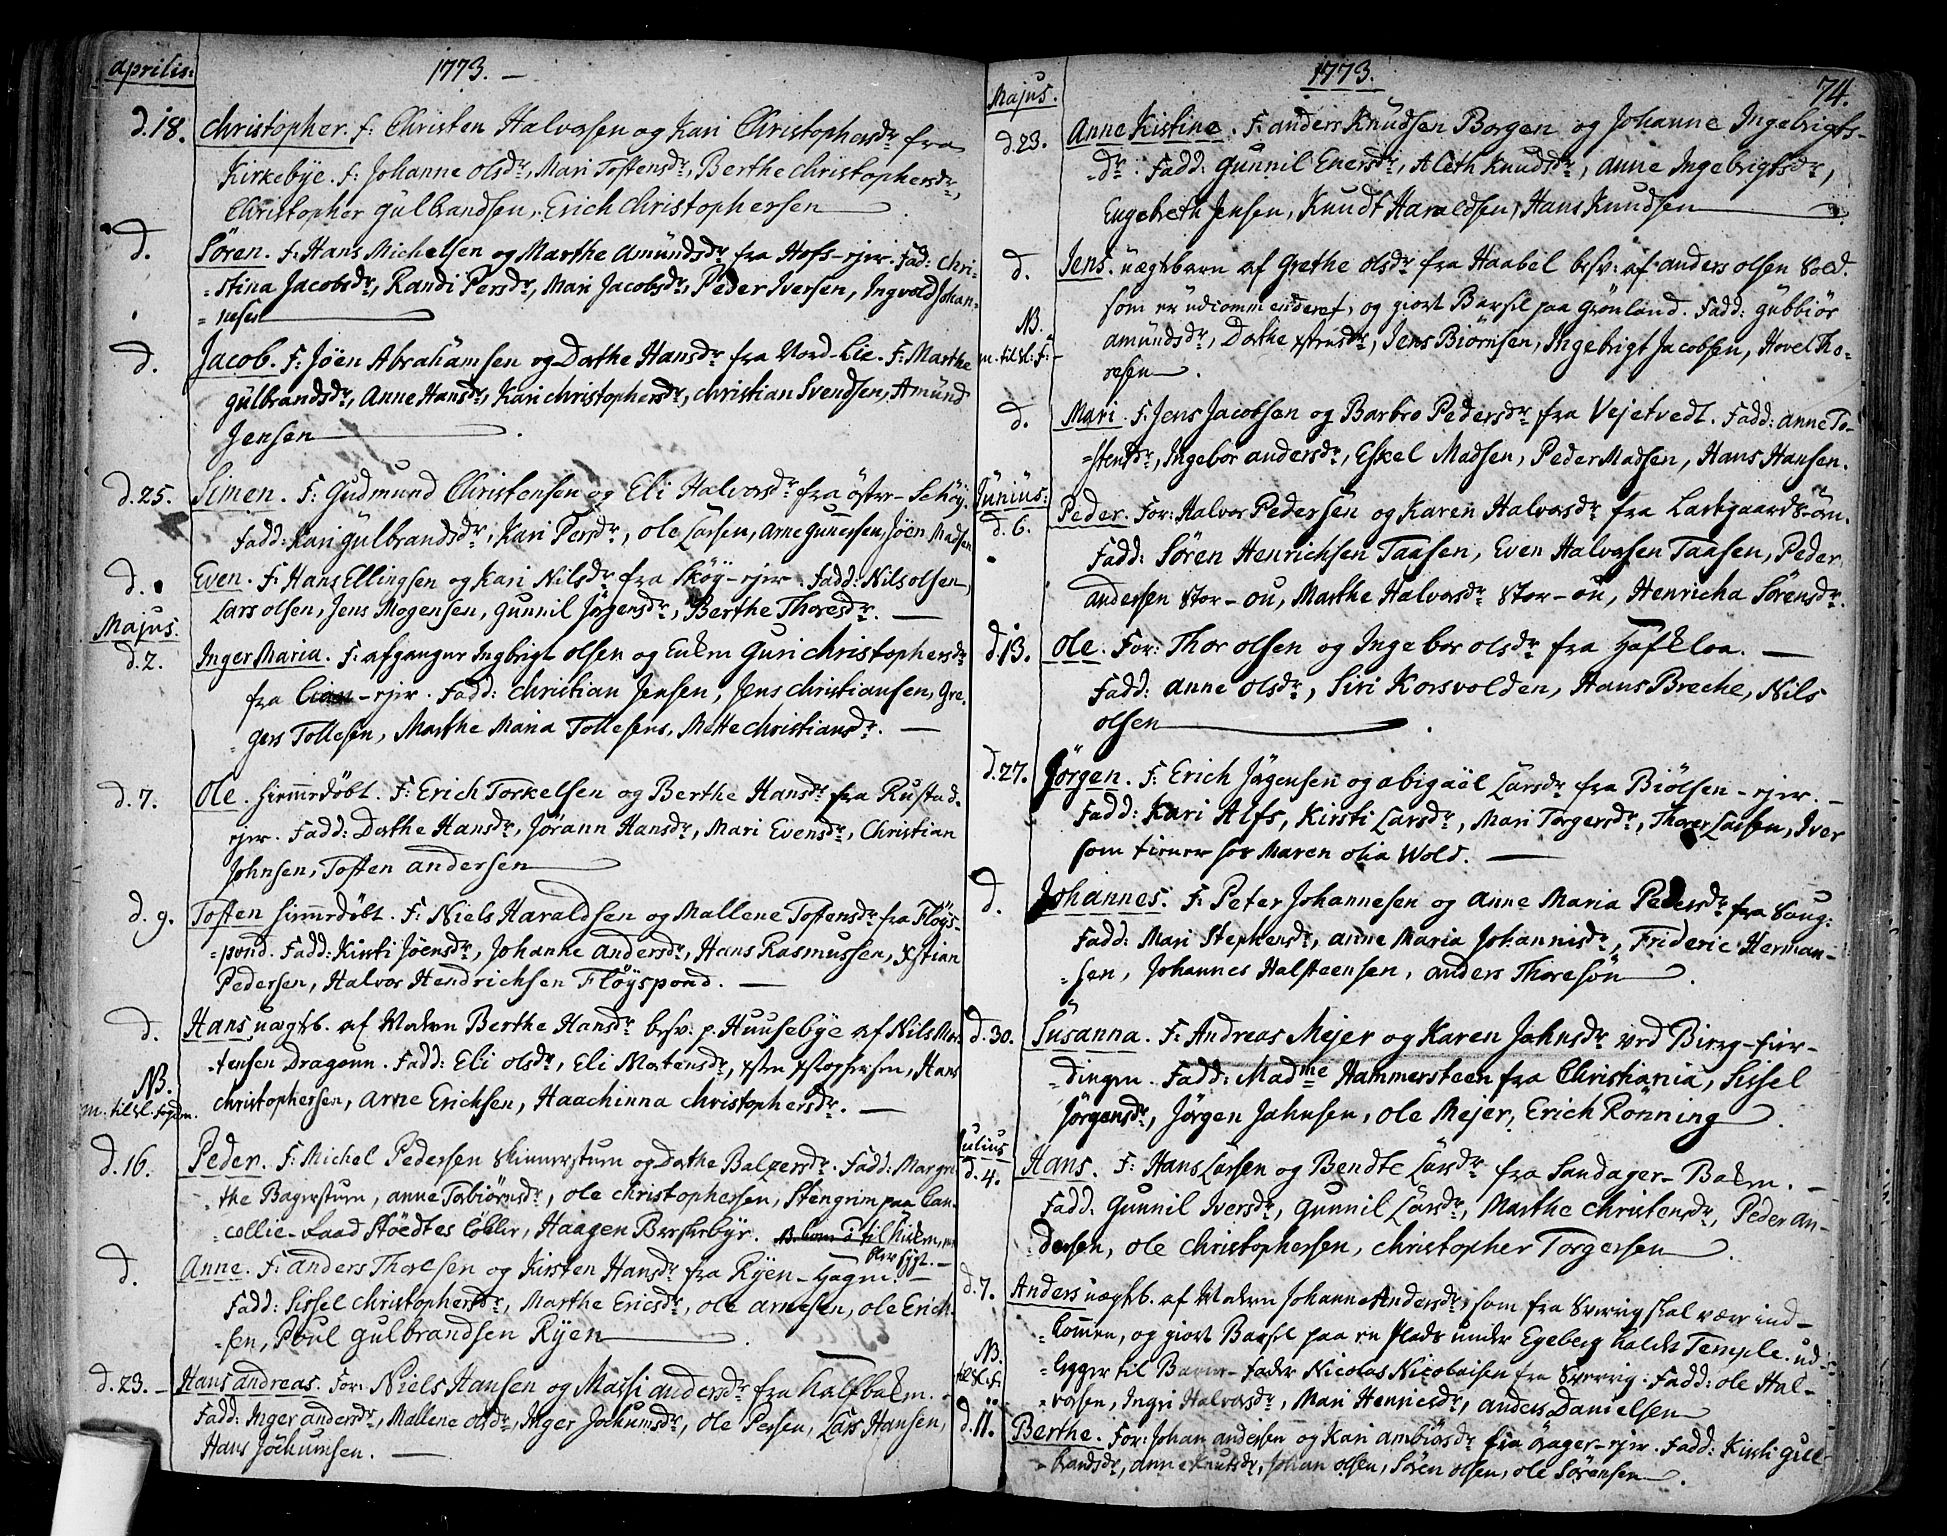 aprilis: 1773. –
d. 18. Christopher. f: Christen Halvorsen og Kari Christophersdr fra
Kirkebÿe. f: Johanne olsdr, Mari Tostensdr, Berthe Christophersdr,
Christopher gulbrandsen, Erich Christophersen
d. Sören. f: Hans Michelsen og Marthe Amundsdr fra Hofs-ejer. Fad: Chri-
stina Jacobsdr, Randi Persdr, Mari Jacobsdr, Peder Iversen, Ingvold Johan-
nesen
d. Jacob. F: Jöen Abrahamsen og Dorthe Hansdr fra Nord-Lie. F: Marthe
gulbrandsdr, Anne Hansdr, Kari Christophersdr, Christian Svendsen, Amund
Jensen
d. 25. Simen. F: Gudmund Christensen og Eli Halvorsdr fra öster-Schöÿ.
Fadd: Kari gülbrandsdr, Kari Persdr, Ole Larsen, Arne gunersen, Jöen Madsen
d. Even. F: Hans Ellingsen og Kari Nilsdr fra Sköÿ-ejer. Fadd: Nils olsen,
Lars olsen, Jens Mogensen, gunnil Jörgensdr, Berthe Thoresdr.
Majus.
d. 2. Inger Maria. F: afgangne Ingbrigt olsen og Enken Guri Christophersdr
fra Lian-ejer. Fadd: Christian Jensen, Jens Christiansen, Gre-
gers Tollesen, Marthe Maria Tollesens, Mette Christiansdr.
d. 7. Ole. hiemmedöbt. F: Erich Torkelsen og Berthe Hansdr fra Rustad-
ejer. Fadd: Dorthe Hansdr, Jörann Hansdr, Mari Evensdr, Christian
Johnsen, Tosten andersen
d. 9. Tosten hiemmedöbt. F: Niels Haraldsen og Mallene Tostensdr fra Flöÿs-
pond. Fadd: Kirsti Jöensdr, Johanne Andersdr, Hans Rasmussen, Xstian
Pedersen, Halvor Hendrichsen Flöÿspond.
d. Hans uægtb. af Moderen Berthe Hansdr besv: p. Huusebÿe af Nils Mor-
tensen Dragoun. Fadd: Eli olsdr, Eli Mortensdr, Xsten Xstophersen, Hans
NB. Christophersen, Arne Erichsen, Haachinna Christophersdr.
m. til Sl. fogden.
d. 16. Peder. F: Michel Pedersen Skinnerstuen og Dorthe Balzersdr. Fadd: Margre-
the Bagerstuen, anne Torbiörnsdr, ole Christophersen, Stengrim paa Can-
cellie-Raad Stöedtes Lökke, Haagen Berskebÿe.
d. Anne. F: anders Thoresen og Kirsten Hansdr fra Rÿen-Hagen.
Fadd: Sissel Christophersdr, Marthe Ericsdr, ole arnesen, ole Erich-
sen, Poul gulbrandsen Rÿen
d. 23. – Hans andreas. For: Niels Hansen og Massi andersdr fra Kalfbaken.
Fadd: Inger andersdr, Mallene olsdr, Inger Jochumsdr, ole Persen, Lars Hansen,
Hans Jöchumsen.
Majus. 1773. 74.
d. 23. Anne Kistine. F: anders Knudsen Borgen og Johanne Ingebrigts-
dr. Fadd: gunnil Enersdr, Aleth Knudsdr, anne Ingebrigtsdr,
Engebreth Jensen, Knudt Haraldsen, Hans Knudsen
d. Jens. uægtebarn af Grethe olsdr fra Haabel besv: af anders olsen Sold.
som er udcommenderet, og giort Barsel paa Grönland. Fadd: gubbiör
NB. amundsdr, Dorthe Xstensdr, Jens Biörnsen, Ingebrigt Jacobsen, Hovel Tho-
m. til Sl: F:- resen.
d. Mari. F: Jens Jacobsen og Barbro Pedersdr fra Vejetvedt. Fadd: anne To-
stensdr, Ingebor andersdr, Eskel Madsen, Peder Madsen, Hans Hansen.
Junius:
d. 6. Peder. For: Halvor Pedersen og Karen Halvorsdr fra Lachegaards-öen.
Fadd: Sören Henrichsen Taasen, Even Halvorsen Taasen, Peder
andersen Stor-ou, Marthe Halvorsdr Stor-ou, Henricha Sörensdr.
d. 13. Ole. For: Thor olsen og Ingebor olsdr fra Hafkloa.
Fadd: anne olsdr, Siri Korsvolden, Hans Breche, Nils
olsen
d. 27. Jörgen. F: Erich Jörgensen og abigaël Larsdr fra Biölsen-ejer.
Fadd: Kari Alfs, Kirsti Larsdr, Mari Torgersdr, Thorer Larsen, Iver
som tiener hos Maren olia Wold.
d. Johannes. F: Peter Johannesen og Anne Maria Pedersdr fra Saug:
Fadd: Mari Stephensdr, anne Maria Johannisdr, Frideric Herman-
sen, Johannes Halsteensen, anders Thoresön
d. 30. Susanna. F: Andreas Mejer og Karen Johnsdr ved Bierg-fier-
dingen. Fadd: Madme Hammersteen fra Christiania, Sissel
Jörgensdr, Jörgen Jahnsen, ole Mejer, Erich Rönning
Julius
d. 4. Hans. F: Hans Larsen og Bendte Larsdr fra Sandager-Baken.
Fadd: gunnil Iversdr, gunnil Larsdr, Marthe Christensdr, Peder an-
dersen, ole Christophersen, Christopher Torgersen
d. 7. Anders uægtb. af Moderen Johanne Andersdr, som fra Sverrig skal være ind-
kommen, og giort Barsel paa en Plads under Egeberg kaldet Temple. ud-
NB. lægger til Barne-fader Nicolas Nicolaisen fra Sverrig. Fadd: ole Hal-
til Sl. F. vorsen, Ingri Halvorsdr, Mari Henricsdr, anders Danielsen
d. 11. Berthe. For: Johan andersen og Kari ambiörsdr fra ager-ejer. Fadd: Kirsti gul-
brandsdr, anne Knutsdr, Johan olsen, Sören olsen, ole Sörensen